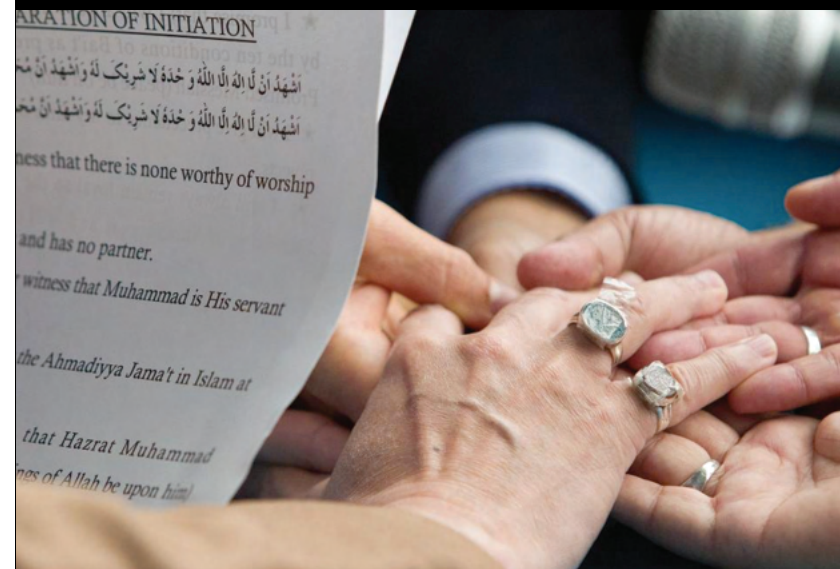 ARATION OF INITIATION
اَشْهَدُ اَنْ لَّا اِلٰهَ اِلَّا اللّٰهُ وَ حْدَهٗ لَا شَرِیْکَ لَهٗ وَ اَشْهَدُ اَنَّ مُحَ
اَشْهَدُ اَنْ لَّا اِلٰهَ اِلَّا اللّٰهُ وَ حْدَهٗ لَا شَرِیْکَ لَهٗ وَ اَشْهَدُ اَنَّ مُحَ
ness that there is none worthy of worship
and has no partner.
witness that Muhammad is His servant
the Ahmadiyya Jama't in Islam at
that Hazrat Muhammad
ings of Allah be upon him)